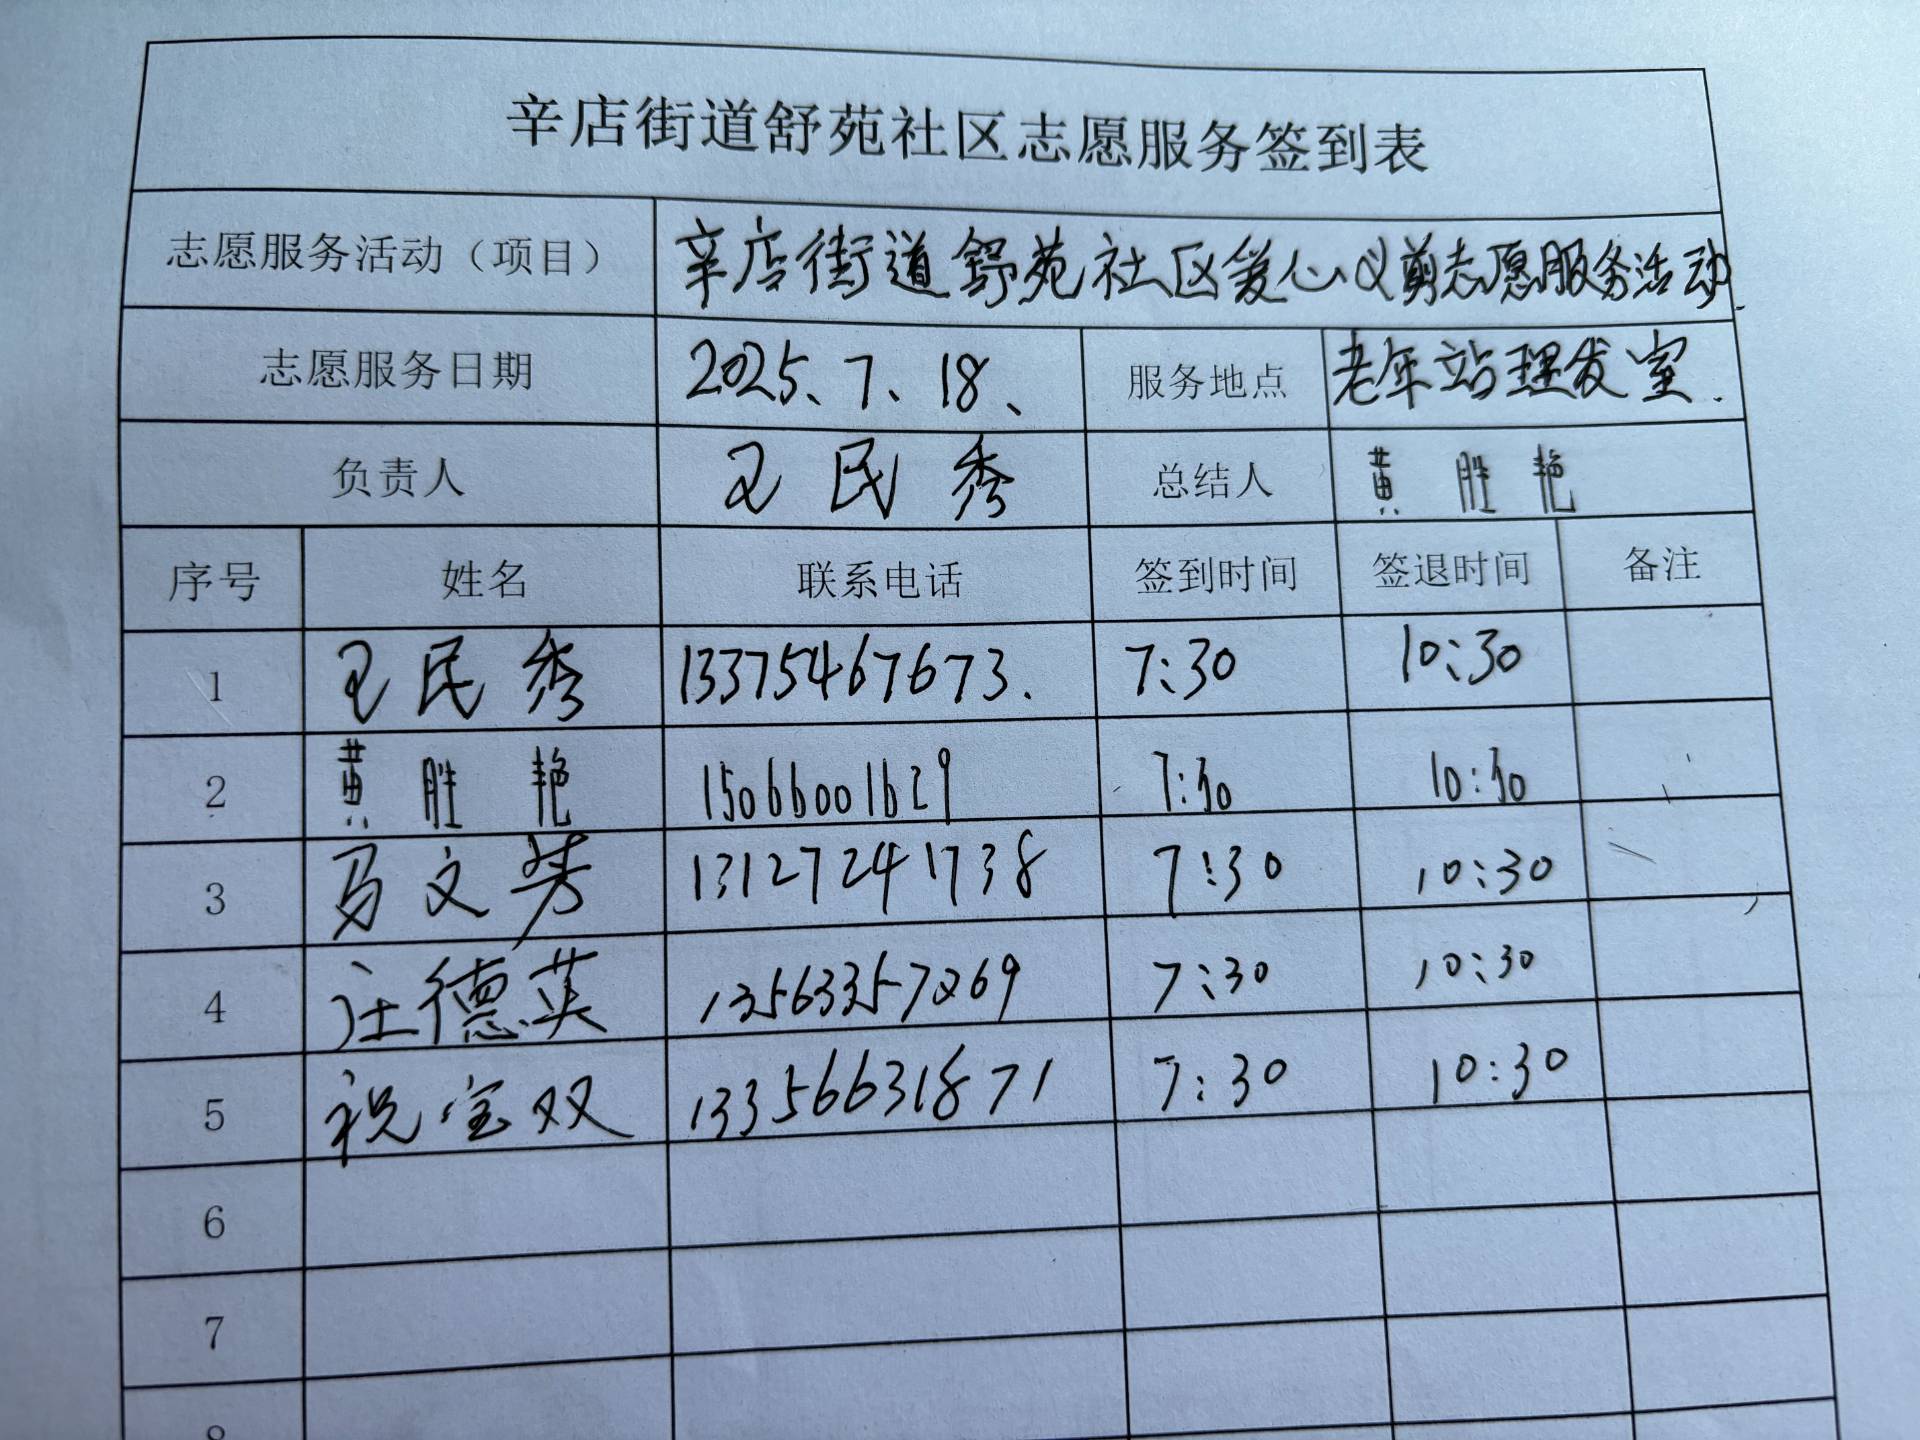 辛店街道舒苑社区志愿服务签到表
志愿服务活动（项目） 辛店街道舒苑社区爱心义剪志愿服务活动.
志愿服务日期 2025、7、18、 服务地点 老年站理发室.
负责人 王民秀 总结人 黄胜艳
序号 姓名 联系电话 签到时间 签退时间 备注
1 王民秀 13375467673. 7:30 10:30
2 黄胜艳 15066001629 7:30 10:30
3 马文芳 13127241738 7:30 10:30
4 汪德英 13563357269 7:30 10:30
5 祝宝双 13356631871 7:30 10:30
6
7
8